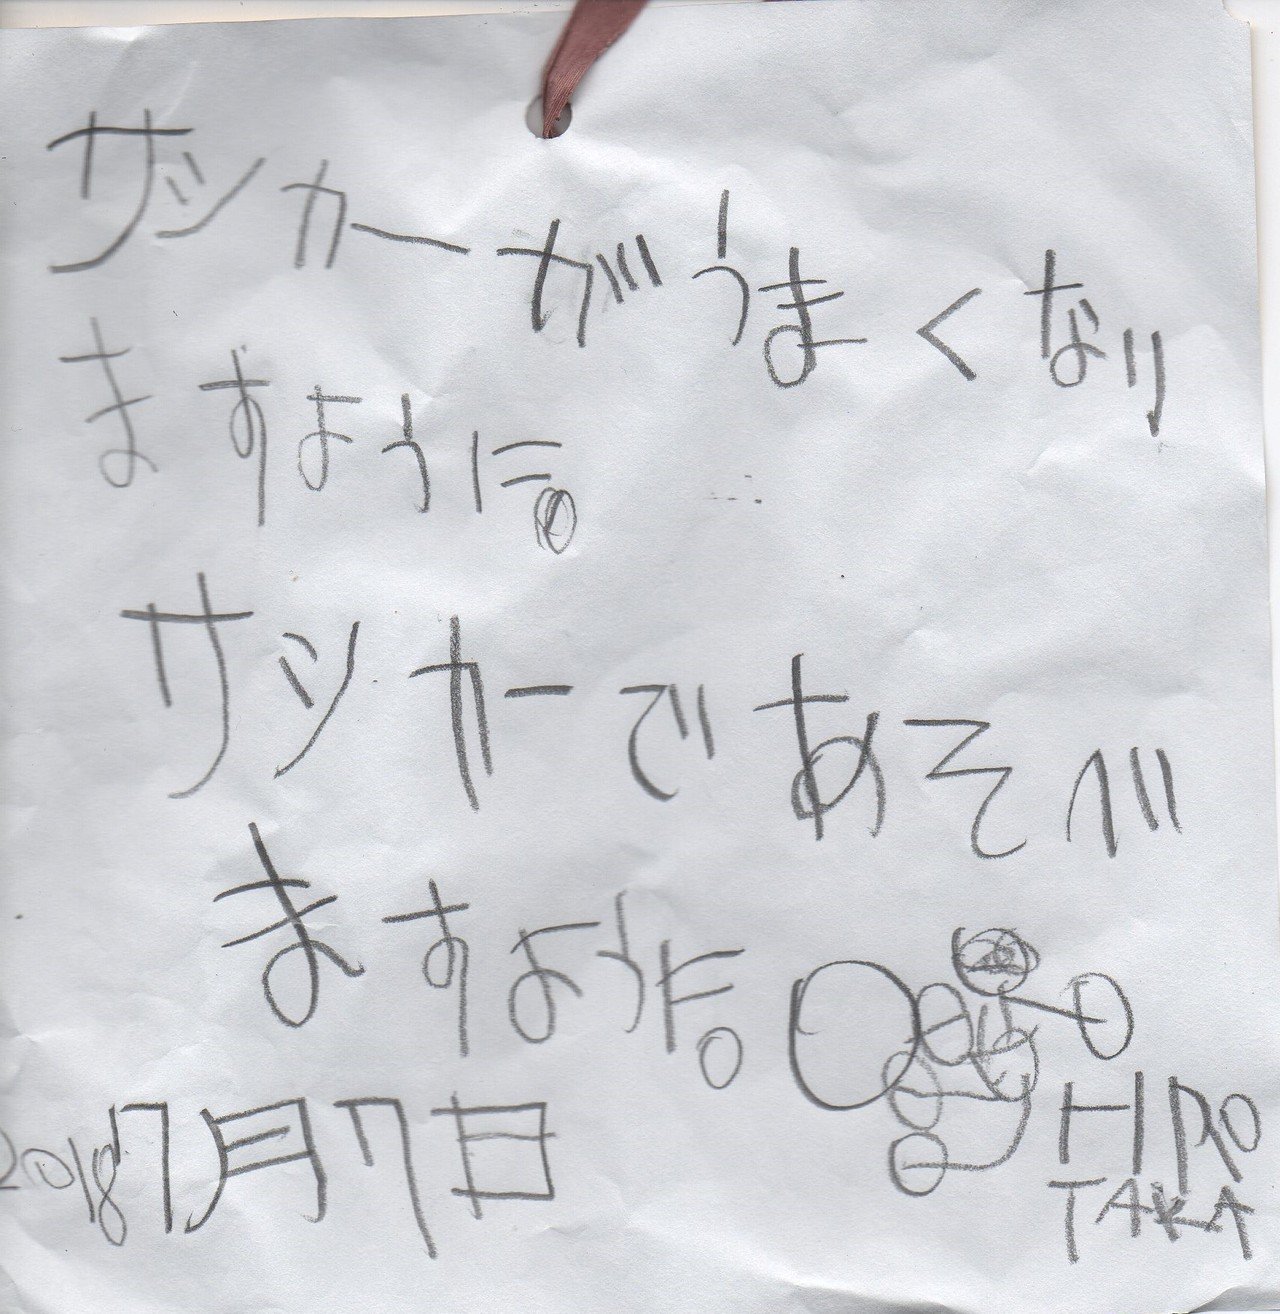 サッカーがうまくなり
ますように。
サッカーであそべ
ますように。
2018 7月7日
HIRO
TAKA